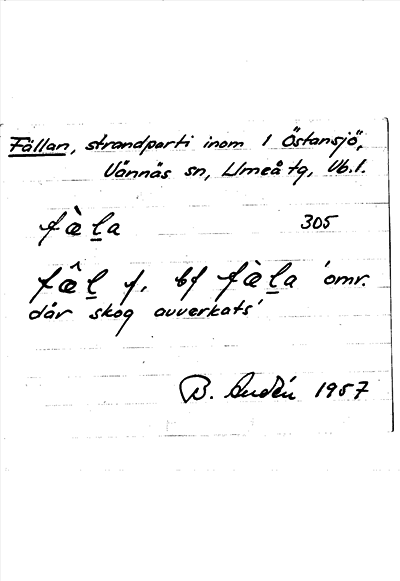 Fällan, strandparti inom 1 Östansjö,
Vännäs sn, Umeå tg, Vb.l.
fæ̀l̲a 305
fæ̂l̲ f. bf fæ̀l̲a 'omr.
där skog avverkats'
B. 1957